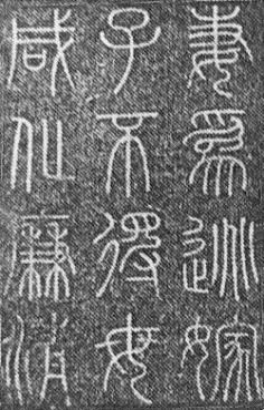 妻爲逃嫁
子不得母
咸化廉清